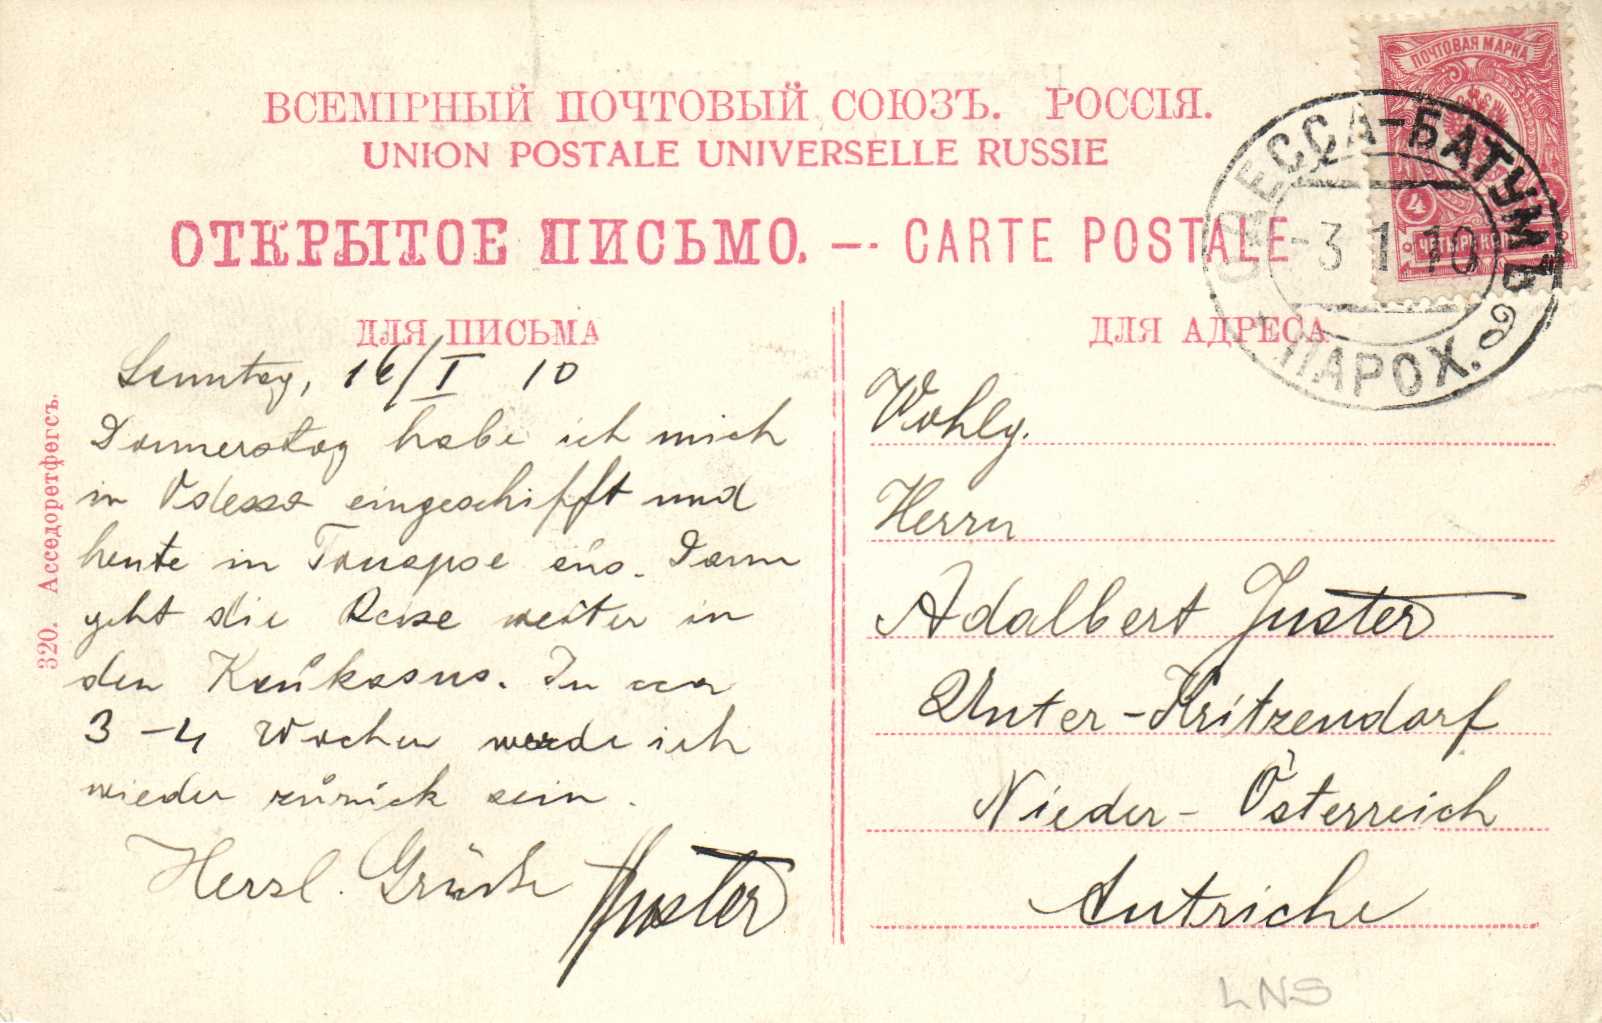 ВСЕМІРНЫЙ ПОЧТОВЫЙ СОЮЗЪ. РОССІЯ.
UNION POSTALE UNIVERSELLE RUSSIE
ОТКРЫТОЕ ПИСЬМО. — CARTE POSTALE
ПОЧТОВАЯ МАРКА
4
ЧЕТЫРЕ КОП
ОДЕССА-БАТУМЪ
-3 1 10
ПАРОХ.
ДЛЯ ПИСЬМА
Sonntag, 16/I 10
Donnerstag habe ich mich
in Odessa eingeschifft und
heute in aus. Dann
geht die Reise weiter in
den Kaukasus. In cca
3-4 Wochen werde ich
wieder zurück sein.
Herzl. Grüße Juster
ДЛЯ АДРЕСА
Wohlg.
Herrn
Adalbert Juster
Unter-Kritzendorf
Nieder-Österreich
Autriche
320. Асседоретфегсъ.
LNS